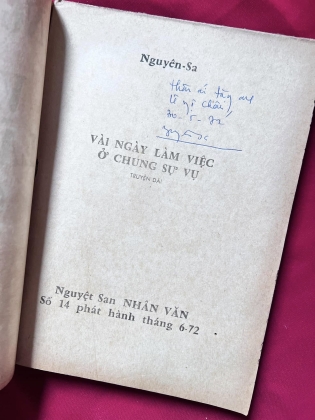 Nguyên-Sa
thân ái tặng
30-5-72
VÀI NGÀY LÀM VIỆC
Ở CHUNG SỰ VỤ
TRUYỆN DÀI
Nguyệt San NHÂN VĂN
Số 14 phát hành tháng 6-72